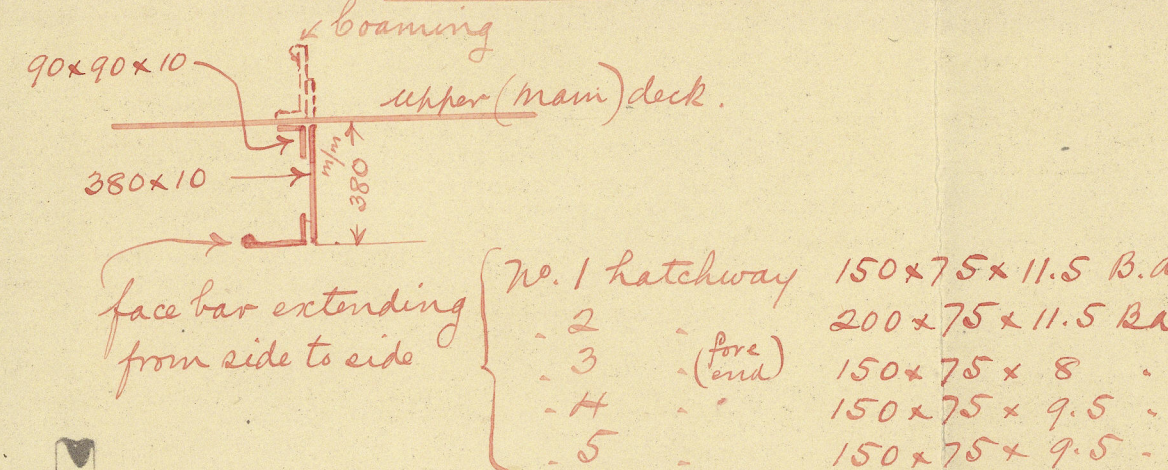 coaming
90x90x10
upper (main) deck.
m/m
380
380x10
face bar extending
from side to side
No. 1 hatchway 150x75x11.5 B.a
" 2 " 200x75x11.5 Ba
" 3 " (fore end) 150x75x 8 "
" 4 " " 150x75x 9.5 "
" 5 " 150x75x 9.5 "